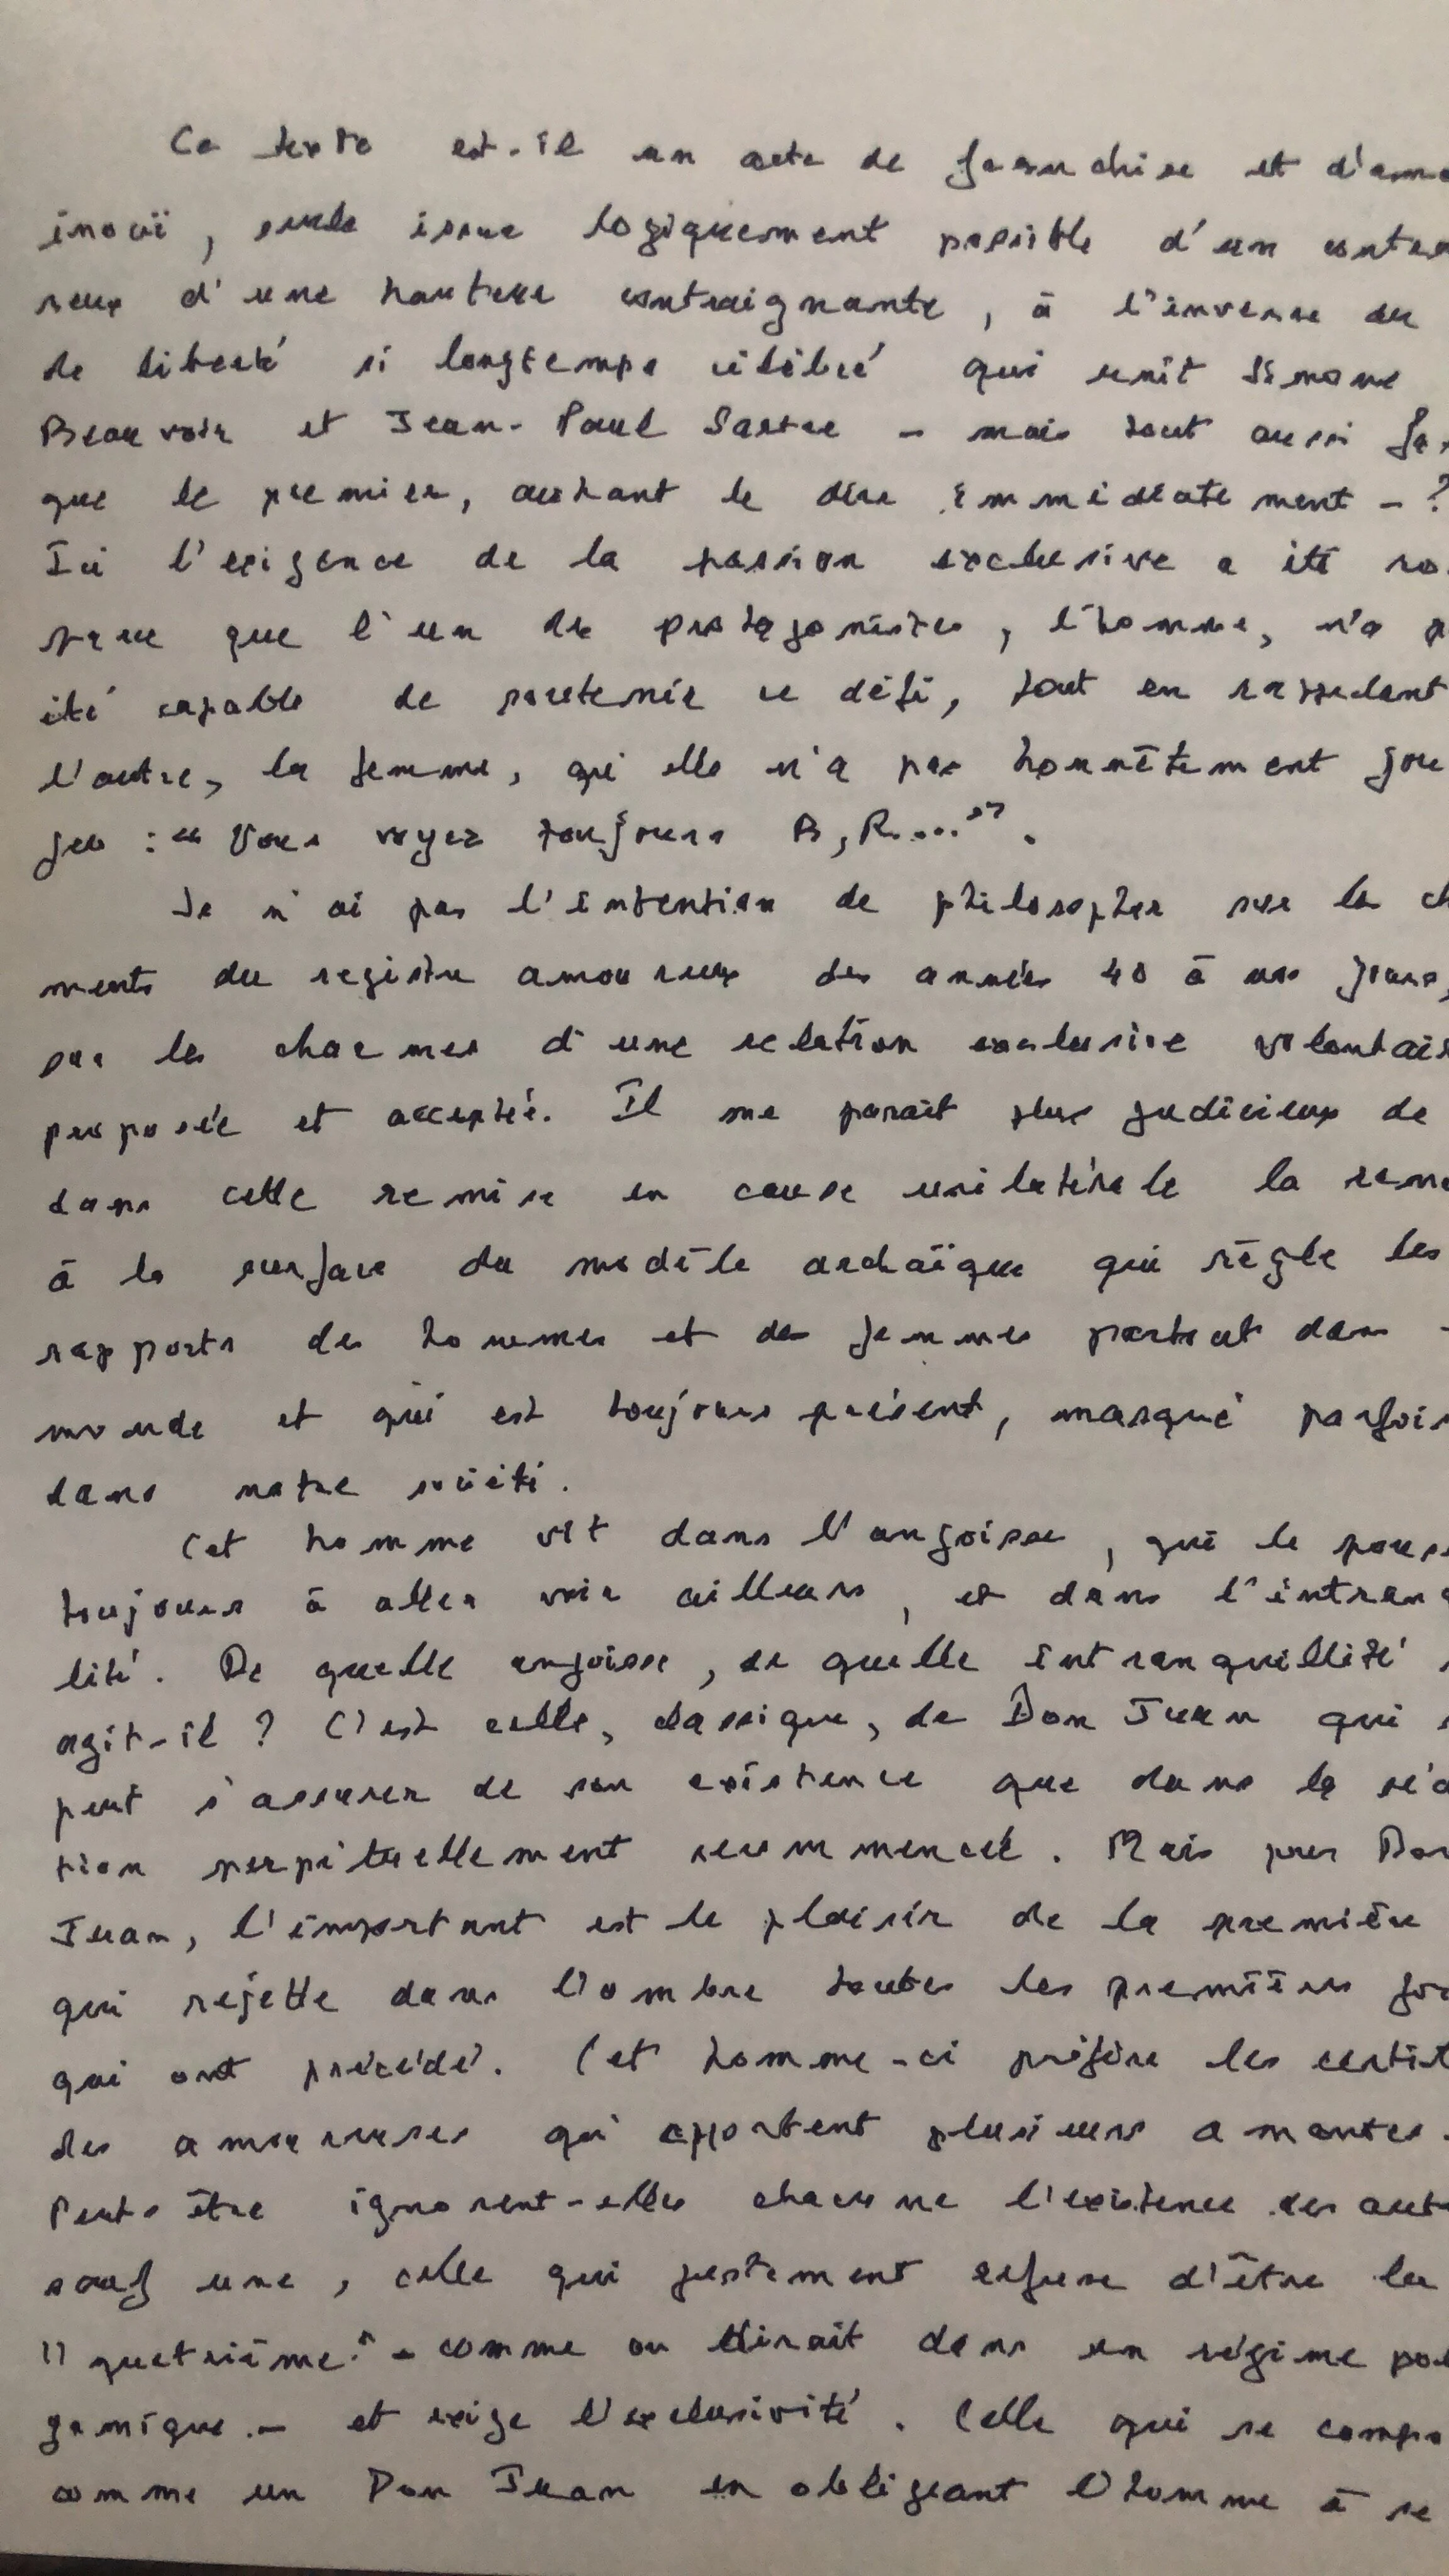 Ce texte est-il un acte de franchise et d'amo
inouï, seule issue logiquement possible d'un contra
reux d'une hauteur contraignante, à l'inverse du
de liberté si longtemps célébré qui unit Simone
Beauvoir et Jean-Paul Sartre – mais tout aussi
que le premier, autant le dire immédiatement – ?
Ici l'exigence de la passion exclusive a été
que l'un des protagonistes, l'homme, n'a p
été capable de soutenir ce défi, tout en rappelant
l'autre, la femme, qui elle n'a pas honnêtement jou
jeu : " Vous voyez toujours B, R...." .
Je n'ai pas l'intention de philosopher sur les ch
ments du registre amoureux des années 40 à nos jours,
sur les charmes d'une relation exclusive volontai
proposée et acceptée. Il me paraît plus judicieux de
dans cette remise en cause unilatérale la remo
à la surface du modèle archaïque qui règle les
rapports des hommes et des femmes partout dans
monde et qui est toujours présent, masqué parfois
dans notre société.
Cet homme vit dans l'angoisse, qui le pous
toujours à aller voir ailleurs, et dans l'intran
lité. De quelle angoisse, de quelle intranquillité
agit-il ? C'est celle, classique, de Don Juan qui
peut s'assurer de son existence que dans la séd
tion perpétuellement recommencée. Mais pour Don
Juan, l'important est le plaisir de la première
qui rejette dans l'ombre toutes les premières foi
qui ont précédé. Cet homme-ci préfère les certit
des amoureuses qui apportent plusieurs amantes.
Peut-être ignorent-elles chacune l'existence des aut
sauf une, celle qui justement refuse d'être la
"quatrième" – comme on dirait dans un régime pol
gamique – et exige l'exclusivité. Celle qui se compo
comme un Don Juan en obligeant l'homme à se